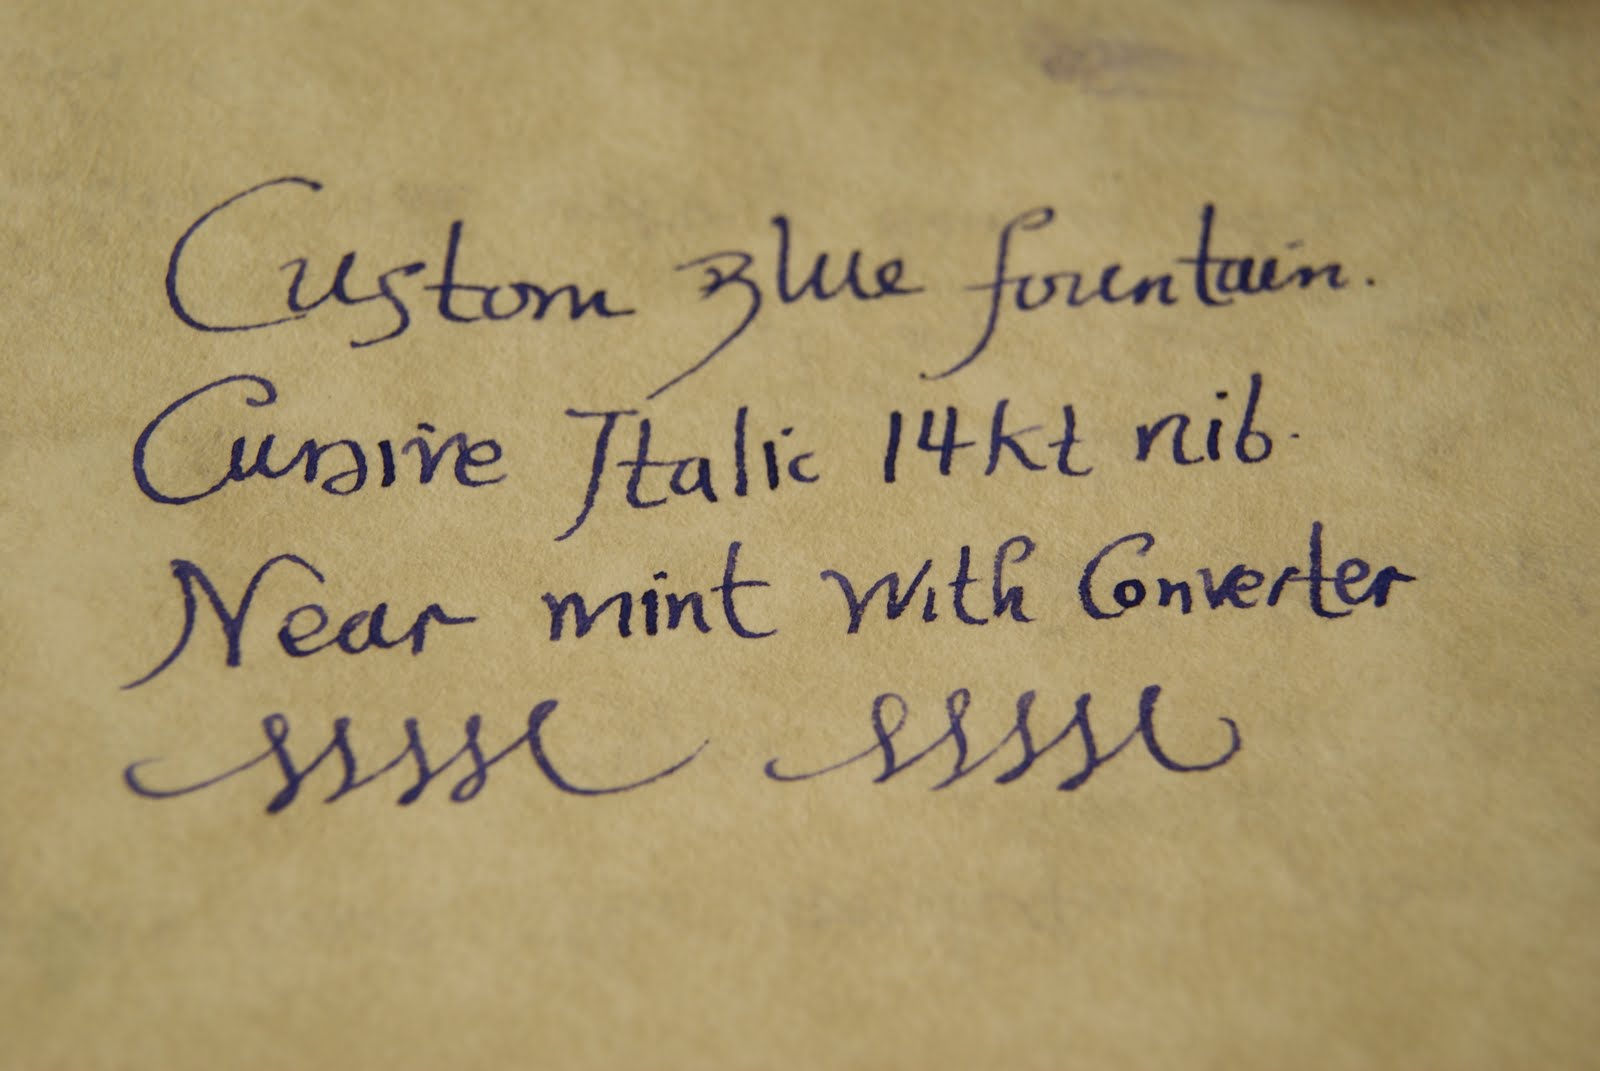 Custom Blue fountain.
Cursive Italic 14kt nib.
Near mint with Converter